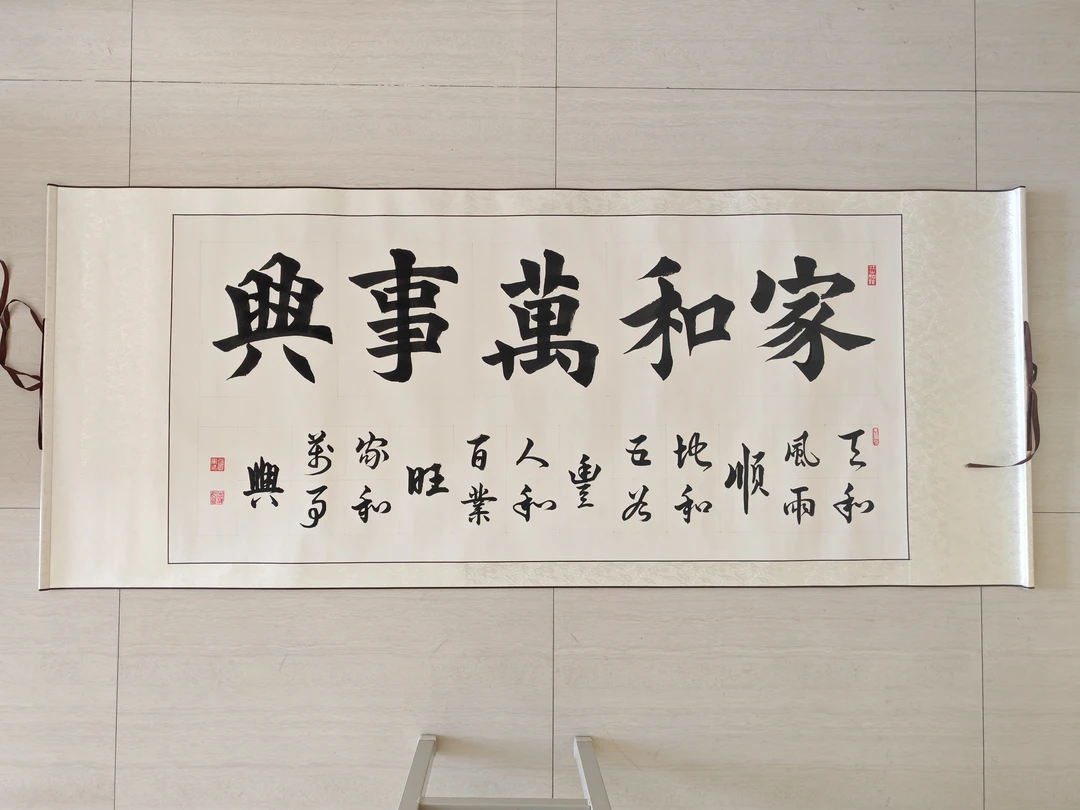 家和萬事興
天和
風雨
順
地和
五谷
豐
人和
百業
旺
家和
萬事
興